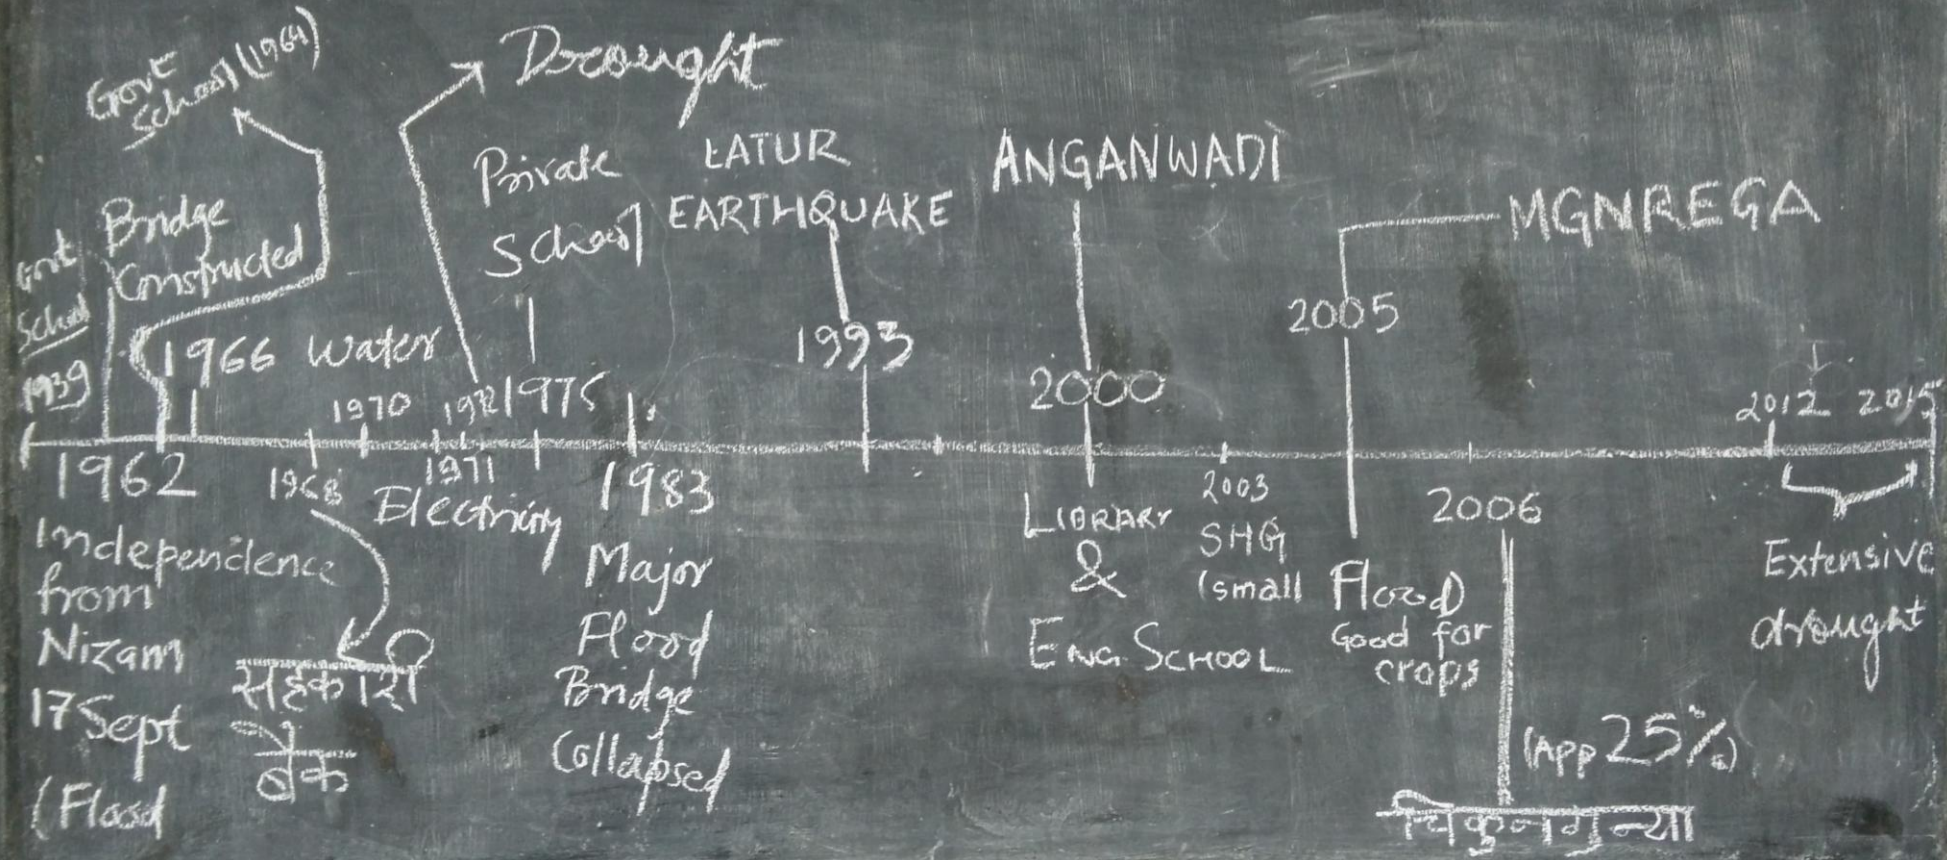 Govt
School (1964)
Drought
Private
School
LATUR
EARTHQUAKE
ANGANWADI
MGNREGA
Govt
School
1939
Bridge
Constructed
1966 Water
1970
1975
1993
2000
2005
2012 2015
1962
1968
1971
Electricity
1983
2003
2006
Independence
from
Nizam
17 Sept
(Flood
सहकारी
बैंक
Major
Flood
Bridge
Collapsed
LIBRARY
&
ENG. SCHOOL
SHG
(small
Flood
Good for
crops
(App 25%)
चिकुनगुन्या
Extensive
drought